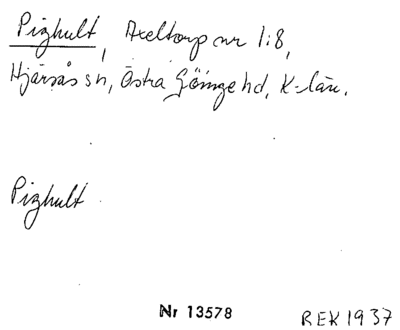 Pighult, Axeltorp nr 1:8,
Hjärsås sn, Östra Göinge hd, K-län.
Pighult
Nr 13578
REK 1937